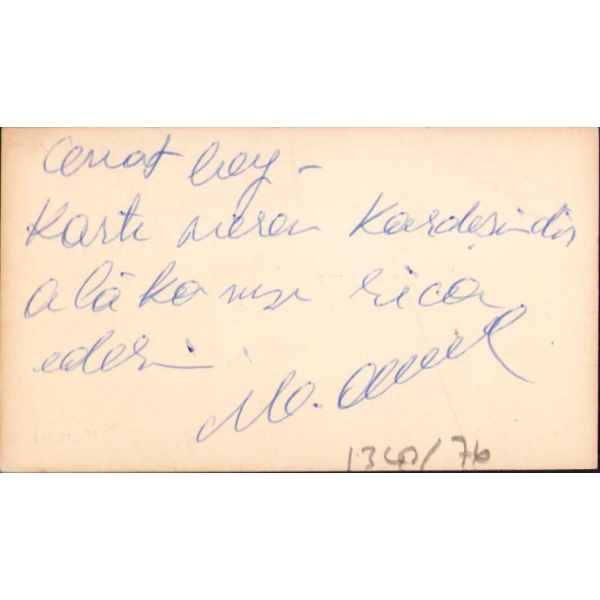 Cevat bey -
Kartı veren Kardeşimdir
alâkanızı rica
ederim
M.
1340/76